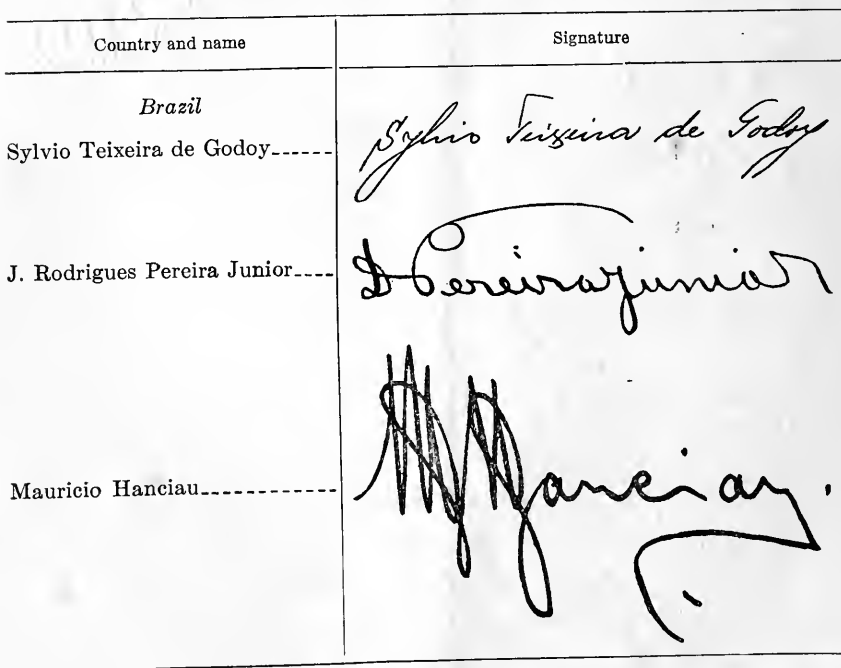 Country and name
Signature
Brazil
Sylvio Teixeira de Godoy------
Sylvio Teixeira de Godoy
J. Rodrigues Pereira Junior----
Pereira Junior
Mauricio Hanciau-----------
Hanciau.